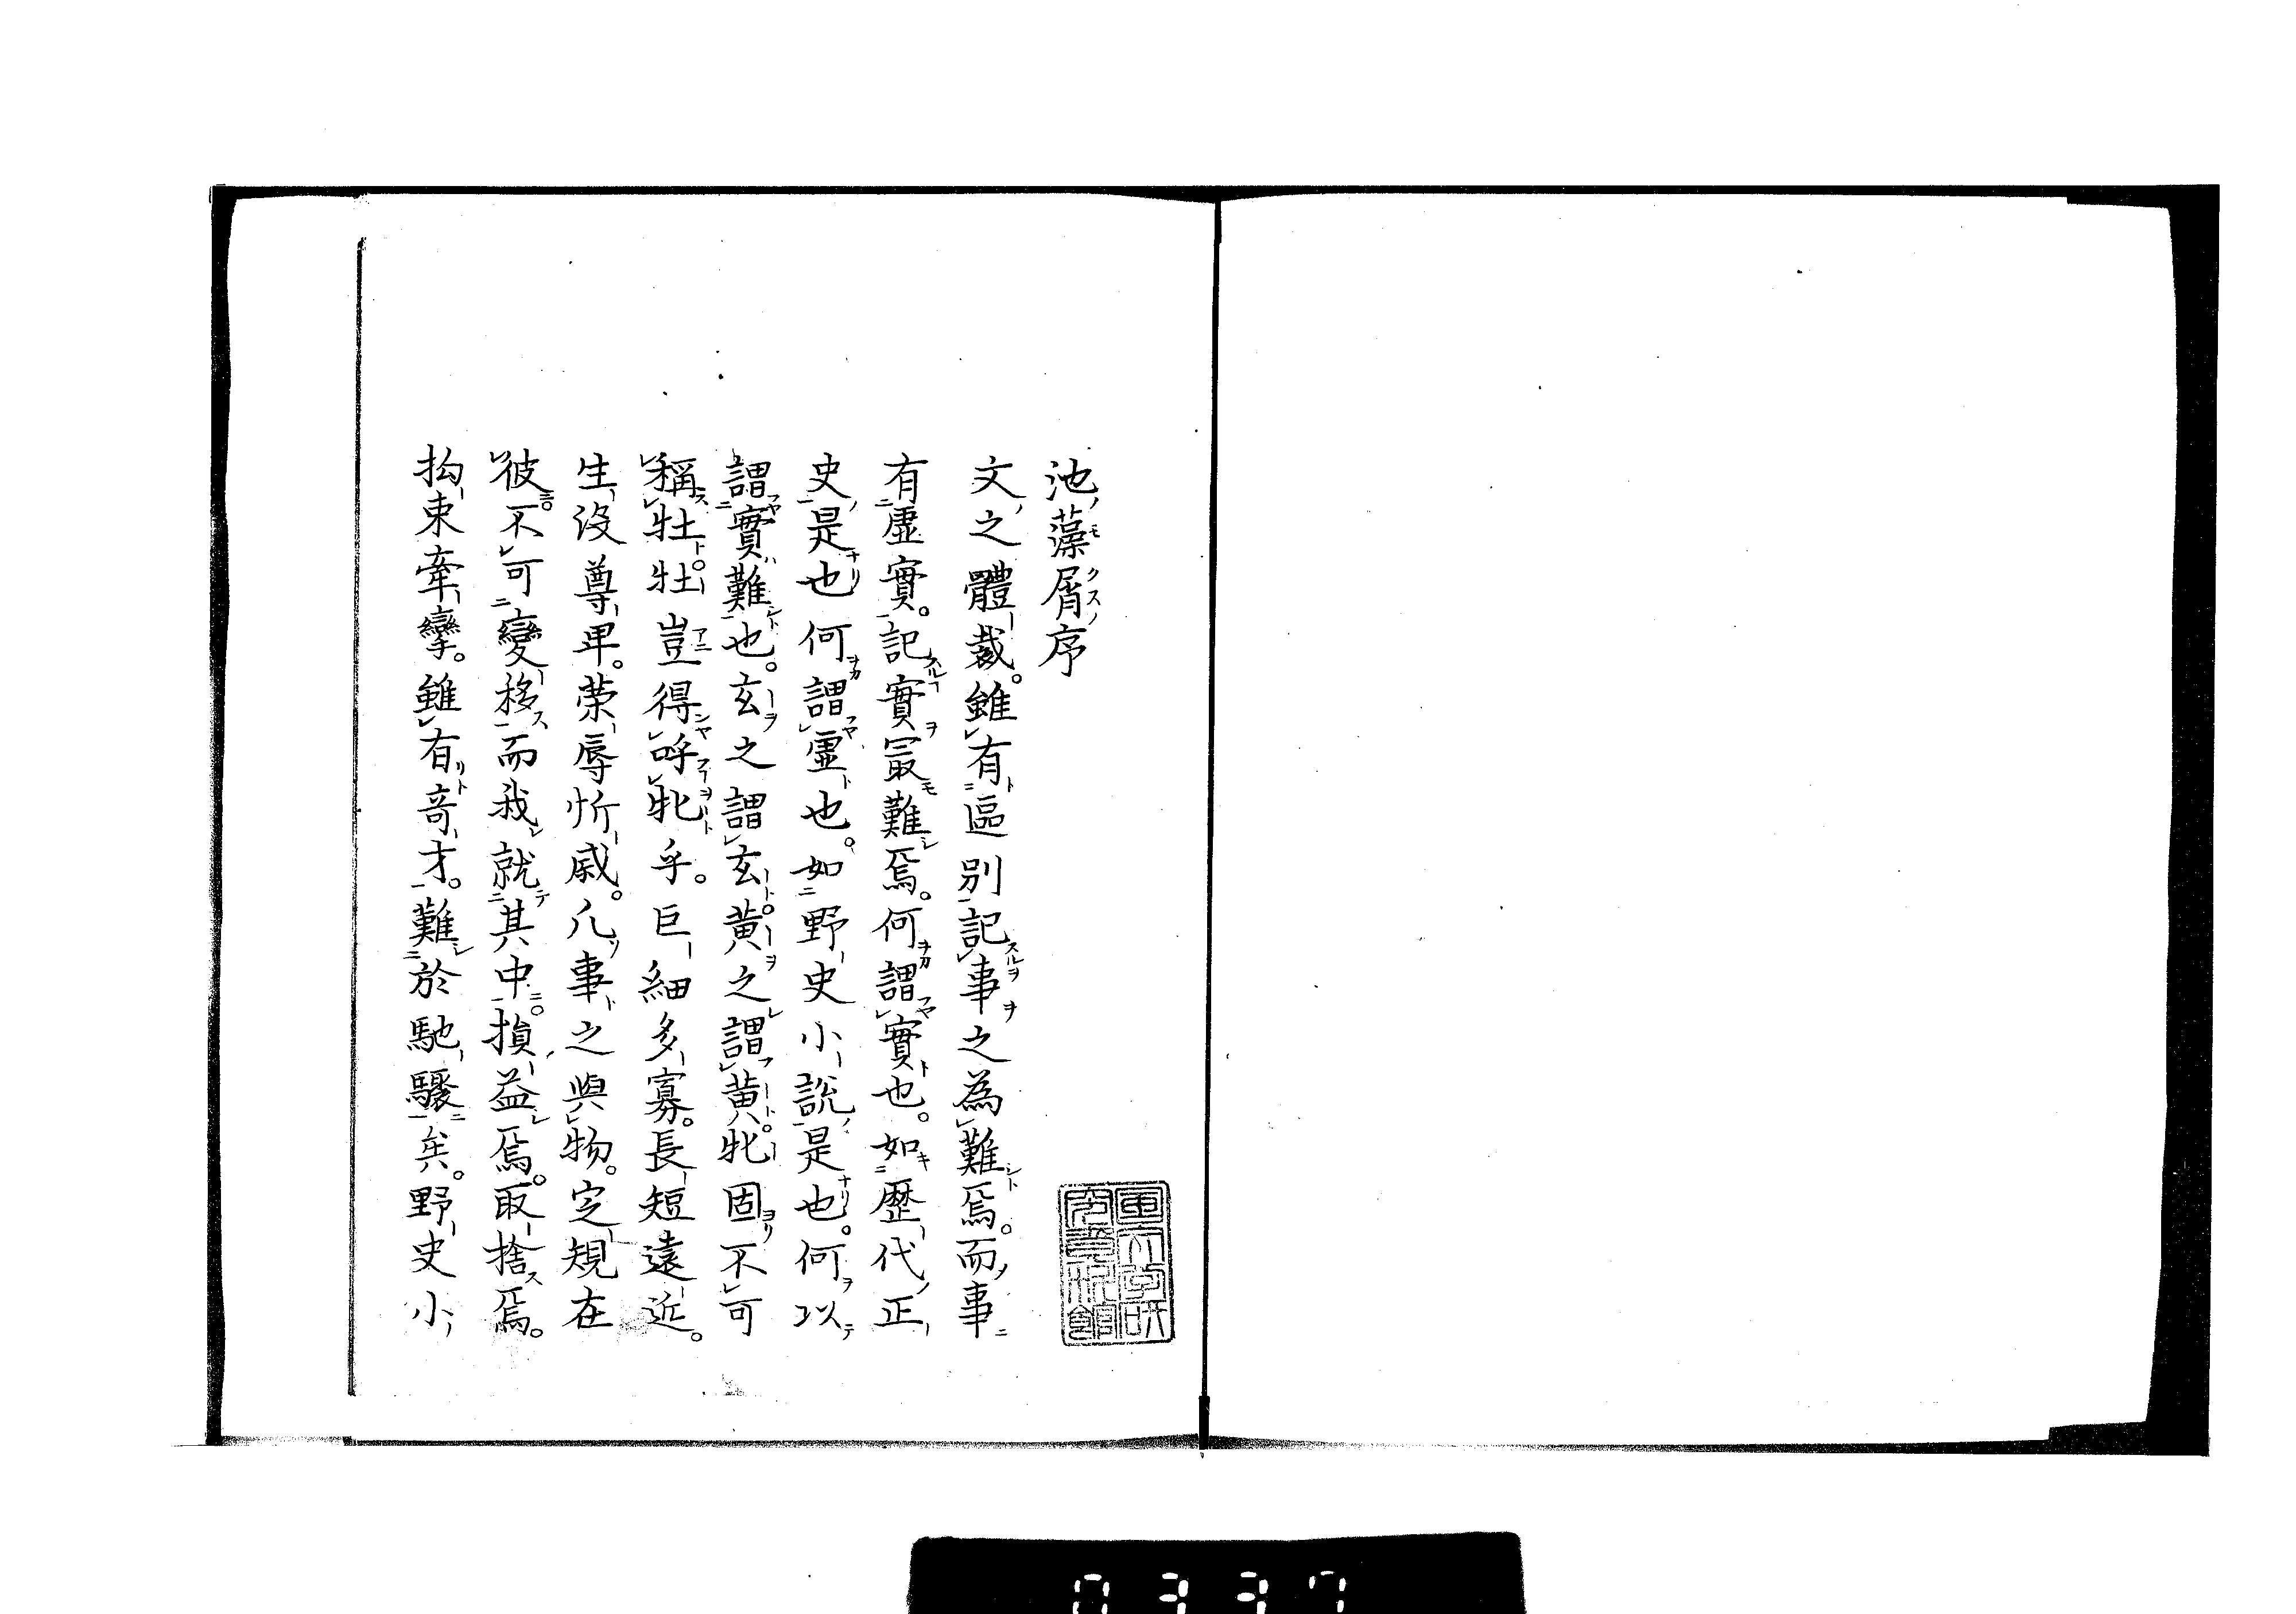 池藻屑序
文之體裁。雖有區別記事之為難焉。而事
有虛實。記實㝡難焉。何謂實也。如歷代正
史是也何謂虛也。如野史小說是也。何以
謂實難也。玄之謂玄。黃之謂黃。牝固不可
稱牡。牡豈得呼牝乎。巨細多寡。長短遠近。
生沒尊卑。荣辱忻戚。凡事之與物。定規在
彼。不可變移而我就其中。損益焉。取捨焉。
拘束牽攣。雖有奇才。難於馳驟矣。野史小
0337